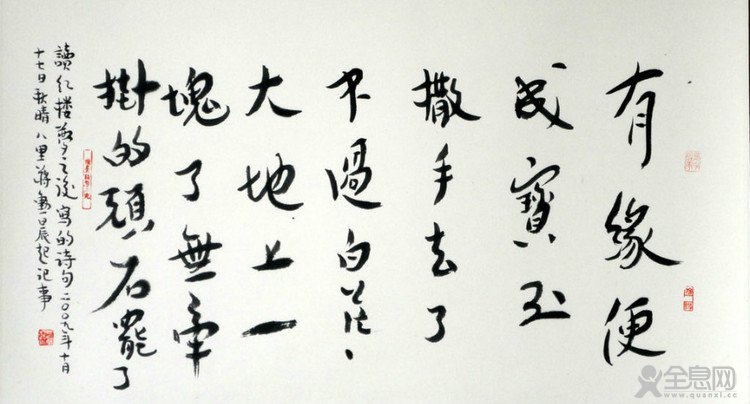 有缘便
成寶玉
撒手去了
不過白茫、
大地上一
塊了無牵
掛的頑石罷了
讀红楼梦之後寫的诗句二〇〇九年十月
十七日秋晴八里蒋勳晨起记事
全息网
www.quanxi.cc